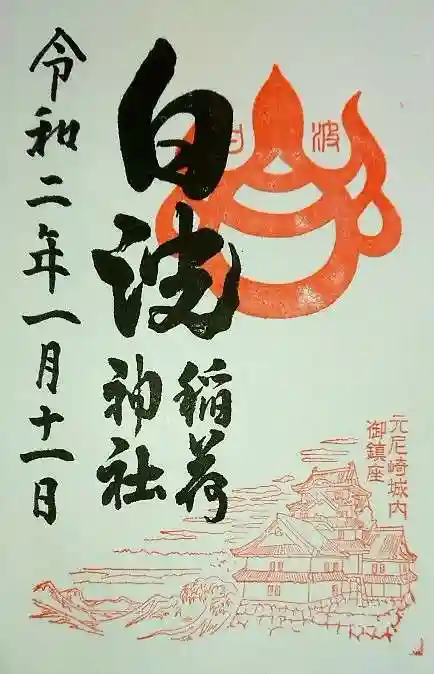 白波
元尼崎城内
御鎮座
白波
稲荷
神社
令和二年一月十一日